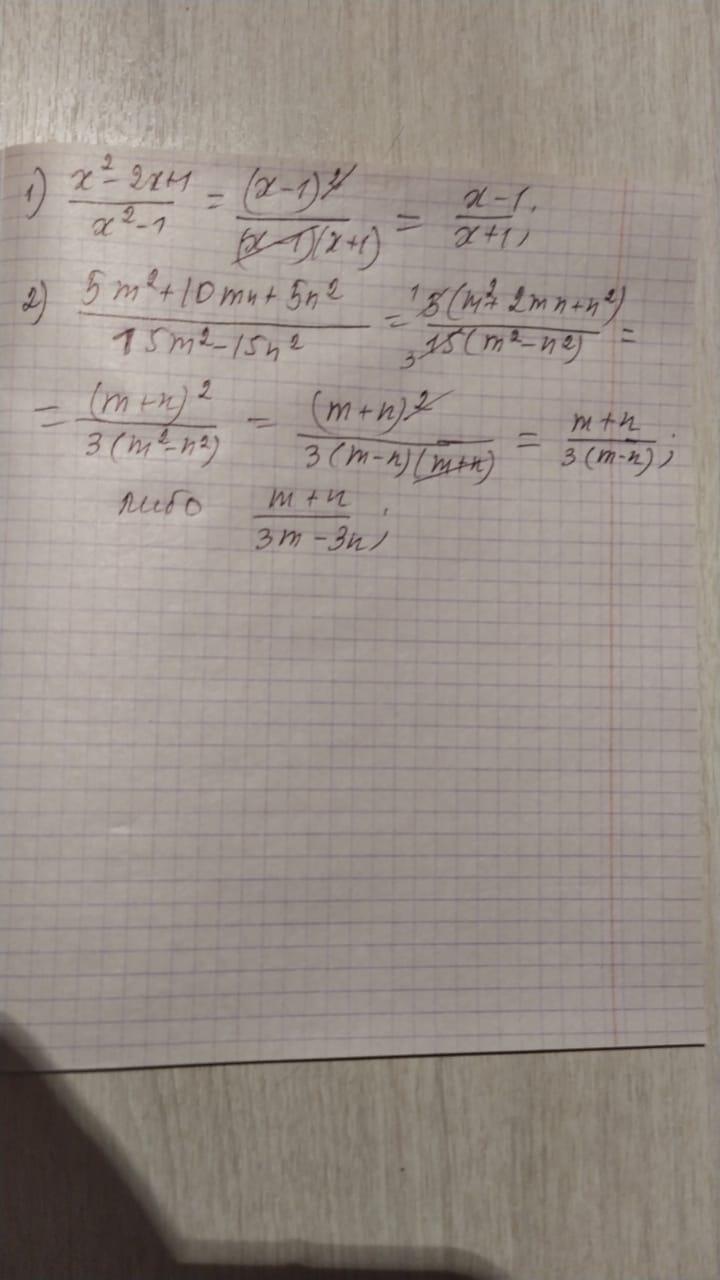 1) \frac{x^2-2x+1}{x^2-1} = \frac{(x-1)^2}{(x-1)(x+1)} = \frac{x-1}{x+1};
2) \frac{5m^2+10mn+5n^2}{15m^2-15n^2} = \frac{^1 5(m^2+2mn+n^2)}{_3 15(m^2-n^2)} =
= \frac{(m+n)^2}{3(m^2-n^2)} = \frac{(m+n)^2}{3(m-n)(m+n)} = \frac{m+n}{3(m-n)};
либо \frac{m+n}{3m-3n};